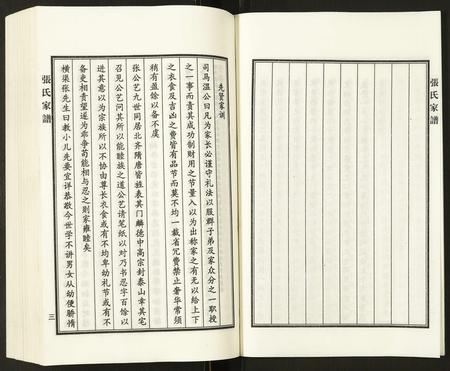 張氏家譜
先贤家训
司马温公曰凡为家长必谨守礼法以服群子弟及家众分之一职授
之一事而责其成功制财用之节量入以为出称家之有无以给上下
之衣食及吉凶之费皆有品节而莫不均一裁省冗费禁止奢华常须
稍有盈馀以备不虞
张公艺九世同居北齐隋唐皆旌表其门麟德中高宗封泰山幸其宅
召见公艺问其所以能睦族之道公艺请笔纸以对乃书忍字百馀以
进其意以为宗族所以不协由尊长衣食或有不均卑幼礼节或有不
备更相责望遂为乖争苟能相与忍之则家雍睦矣
横渠张先生曰教小儿先要宜详恭敬今世学不讲男女从幼便骄惰
張氏家譜
三